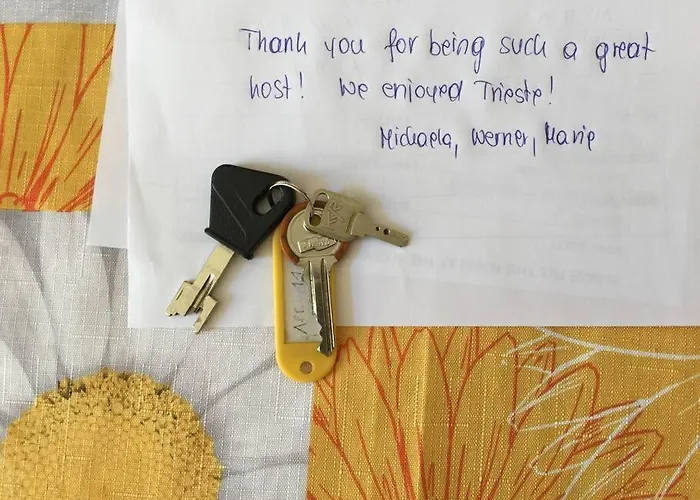 Thank you for being such a great
host! We enjoyed Trieste!
Michaela, Werner, Marie